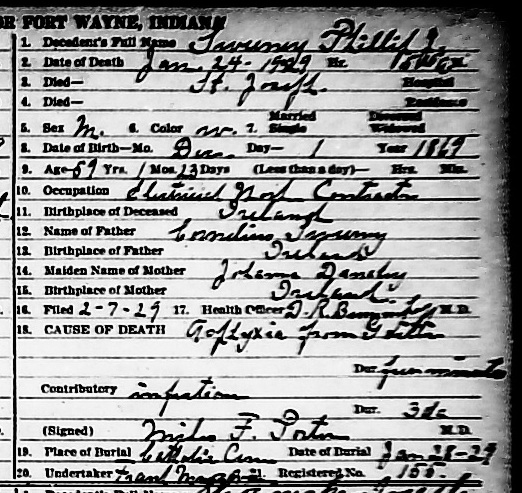 OR FORT WAYNE, INDIANA
1. Decedent's Full Name Sweeney Phillip J.
2. Date of Death Jan. 24- 1929 Hr.
3. Died— St. Joseph. Hospital
4. Died— Residence
Married Divorced
5. Sex M. 6. Color w. 7. Single Widowed
8. Date of Birth—Mo. Dec. Day— 1 Year 1869
9. Age 59 Yrs. 1 Mos. 23 Days (Less than a day)— Hrs. Min.
10. Occupation Electrical Work Contractor
11. Birthplace of Deceased Ireland
12. Name of Father Cornelius Sweeney
13. Birthplace of Father Ireland
14. Maiden Name of Mother Johanna
15. Birthplace of Mother Ireland.
16. Filed 2-7-29 17. Health Officer D.R. M.D.
18. CAUSE OF DEATH from
Dur. few minutes
Contributory
Dur. 3 da
(Signed) Miles F. Porter M.D.
19. Place of Burial Catholic Cem Date of Burial Jan 28-29
20. Undertaker Frank 21. Registered No. 155.